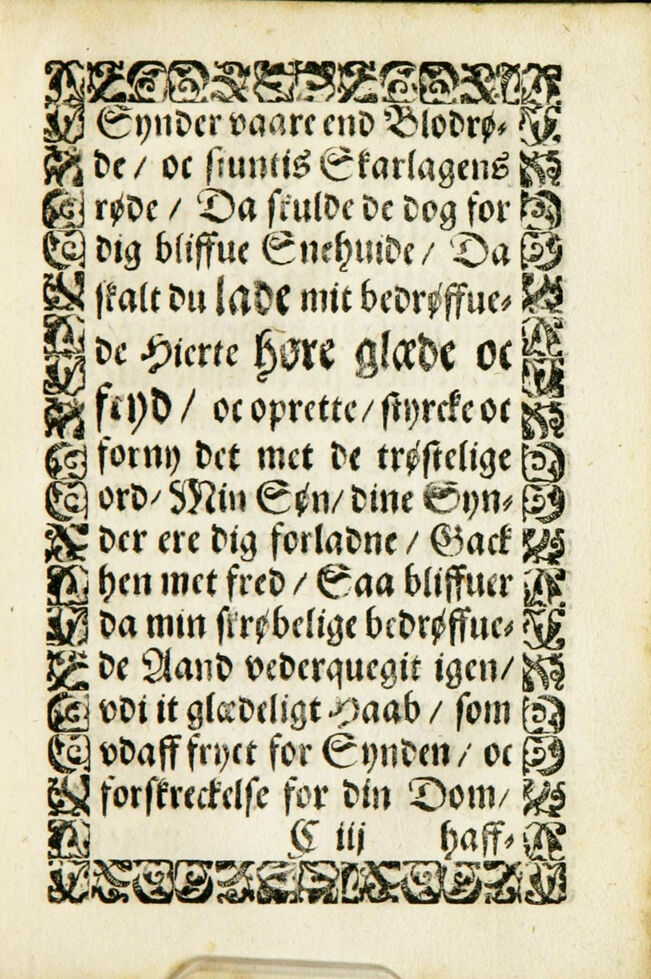 Synder vaare end Blodrø-
de / oc siuntis Skarlagens
røde / Da skulde de dog for
dig bliffue Snehuide / Da
skalt du lade mit bedrøffue-
de Hierte høre glæde oc
fryd / oc oprette / styrcke oc
forny det met de trøstelige
ord / Min Søn / dine Syn-
der ere dig forladne / Gack
hen met fred / Saa bliffuer
da min skrøbelige bedrøffue-
de Aand vederquegit igen /
vdi it glædeligt Haab / som
vdaff fryct for Synden / oc
forskreckelse for din Dom /
C iij haff-